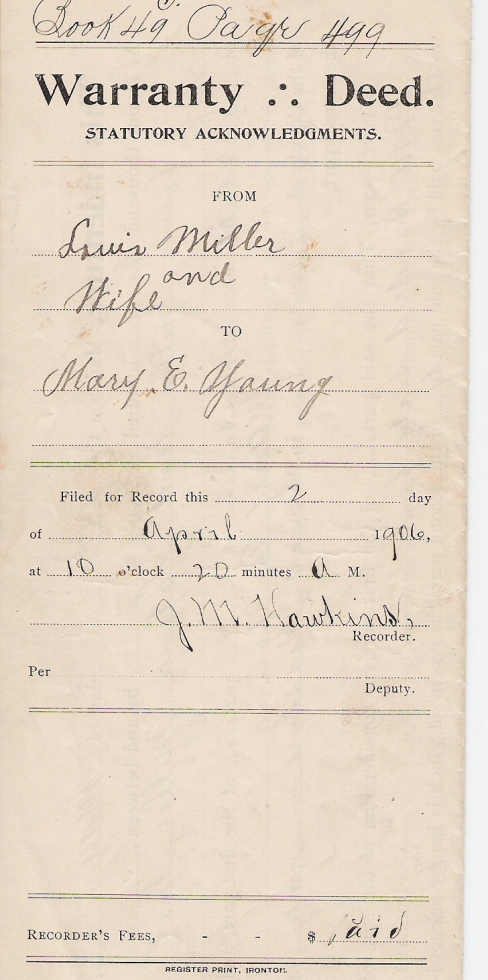 Book 49 Page 499
Warranty ∴ Deed.
STATUTORY ACKNOWLEDGMENTS.
FROM
Louis Miller
and
Wife
TO
Mary E. Young
Filed for Record this 2 day
of April 1906,
at 10 o'clock 20 minutes A M.
J. M. Hawkins,
Recorder.
Per
Deputy.
RECORDER'S FEES, - - $ paid
REGISTER PRINT, IRONTON.